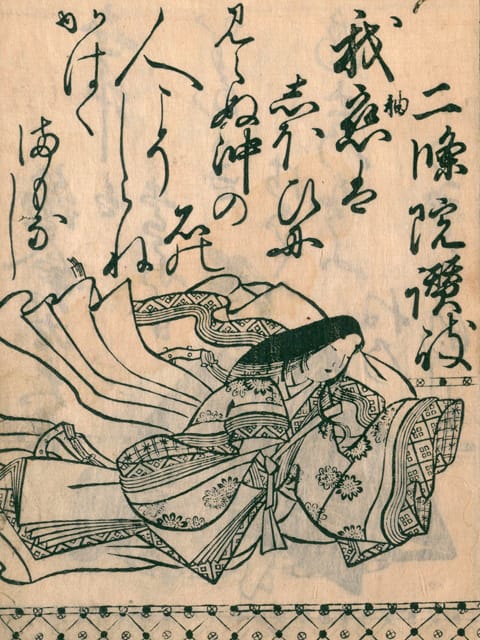 二條院讚岐
我恋は
袖
しほひに
見えぬ沖の
石の
人こそ
しらね
かはく
まもなし